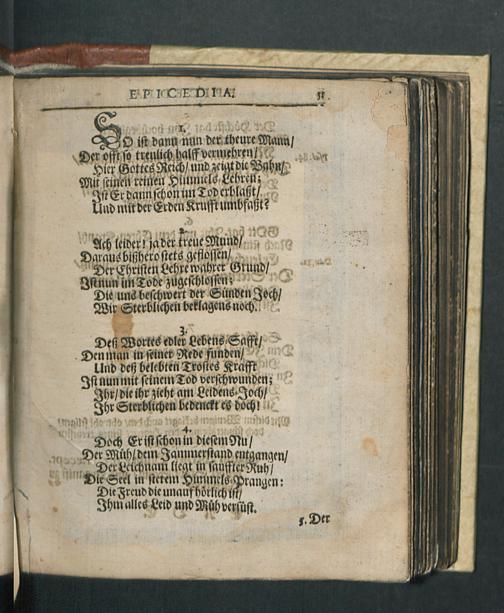 EPICEDIA. 51
1.
SO ist dann nun der theure Mann/
Der offt so treulich halff vermehren/
Hier Gottes Reich/ und zeigt die Bahn/
Mit seinen reinen Himmels-Lehren;
Ist Er dann schon im Tod erblaßt/
Und mit der Erden Krufft umbfaßt?
2.
Ach leider! ja der treue Mund/
Daraus bißhero stets geflossen/
Der Christen Lehre wahrer Grund/
Ist nun im Tode zugeschlossen;
Die uns beschwert der Sünden Joch/
Wir Sterblichen beklagens noch.
3.
Deß Wortes edler Lebens-Safft/
Den man in seiner Rede funden/
Und deß belebten Trostes Krafft
Ist nun mit seinem Tod verschwunden;
Ihr/ die ihr zieht am Leidens-Joch/
Ihr Sterblichen bedenckt es doch!
4.
Doch Er ist schon in diesem Nu/
Der Müh/ dem Jammerstand entgangen/
Der Leichnam liegt in sanffter Ruh/
Die Seel in stetem Himmels-Prangen:
Die Freud die unauffhörlich ist/
Ihm alles Leid und Müh versüst.
5. Der